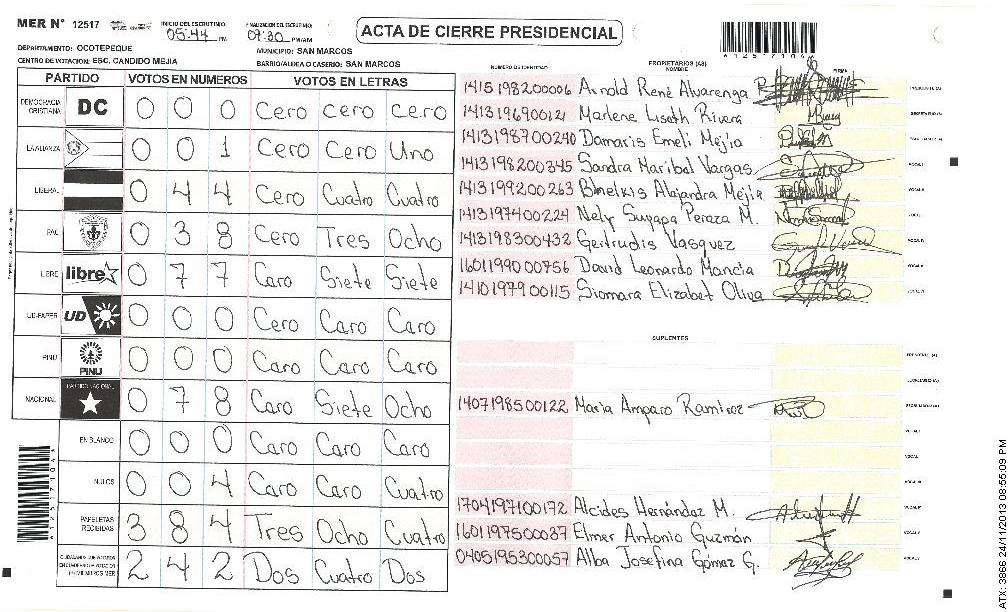 MER N° 12517 INICIO DEL ESCRUTINIO 05:44 PM FINALIZACIÓN DEL ESCRUTINIO 07:30 PM/AM
ACTA DE CIERRE PRESIDENCIAL
DEPARTAMENTO: OCOTEPEQUE MUNICIPIO: SAN MARCOS
CENTRO DE VOTACION: ESC. CANDIDO MEJIA BARRIO/ALDEA O CASERIO: SAN MARCOS
PARTIDO VOTOS EN NUMEROS VOTOS EN LETRAS
DEMOCRACIA CRISTIANA DC 0 0 0 Cero cero cero
LA ALIANZA 0 0 1 Cero Cero Uno
LIBERAL 0 4 4 Cero Cuatro Cuatro
PAC 0 3 8 Cero Tres Ocho
LIBRE libre 0 7 7 Caro Siete Siete
UD-FAPER UD 0 0 0 Cero Caro Caro
PINU PINU 0 0 0 Caro Caro Caro
NACIONAL PARTIDO NACIONAL 0 7 8 Caro Siete Ocho
EN BLANCO 0 0 0 Caro Caro Caro
NULOS 0 0 4 Caro Caro Cuatro
PAPELETAS RECIBIDAS 3 8 4 Tres Ocho Cuatro
2 4 2 Dos Cuatro Dos
NUMERO DE IDENTIDAD PROPIETARIOS (AS) NOMBRE FIRMA
1415198200006 Arnold René Alvarenga R
1413196900121 Marlene Liseth Rivera
1413198700240 Damaris Emeli Mejia
1413198200345 Sandra Maribal Vargas
1413199200263 Alajandra Mejia
1413197400224 Nely Suyapa Peraza M.
1413198300432 Gertrudis Vasquez
1601199000756 David Leonardo Mancia
1410197900115 Siomara Elizabet Oliva
SUPLENTES
1407198500122 Maria Amparo Ramirez
1704197100172 Alcides Hernández M.
1601197500037 Elmer Antonio Guzmán
0405195300057 Alba Josefina Gómez G.
ATX: 3866 24/11/2013 08:55:09 PM